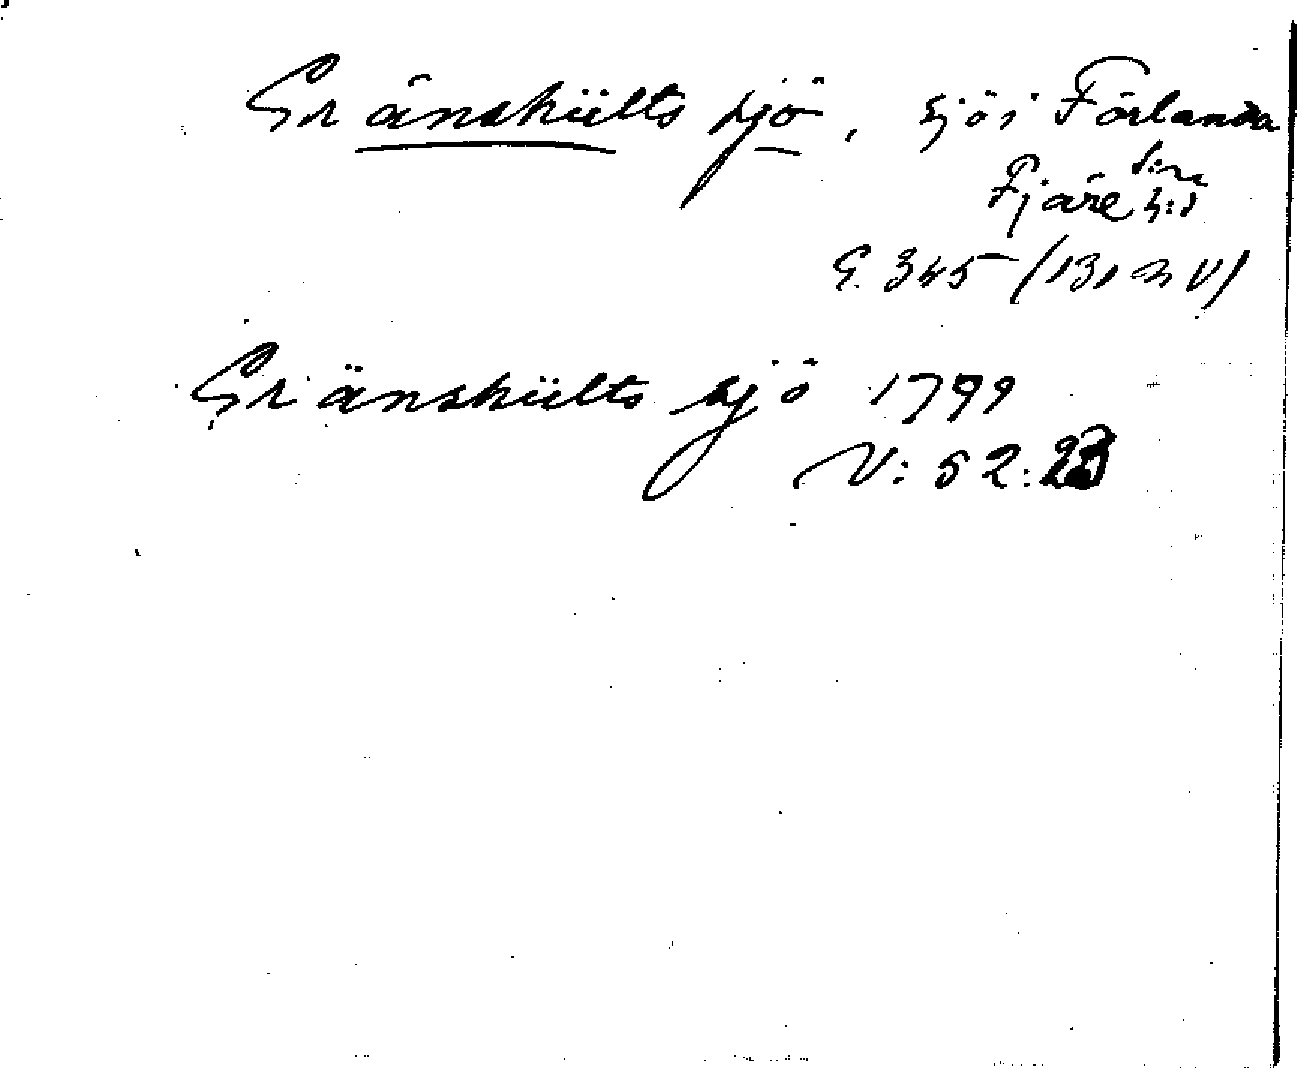 Gränshülts sjö, sjö i Förlanda
s:n
Fjäre h:d
G. 345 (131 a V)
Gränshülts sjö 1799
V: 52: 23